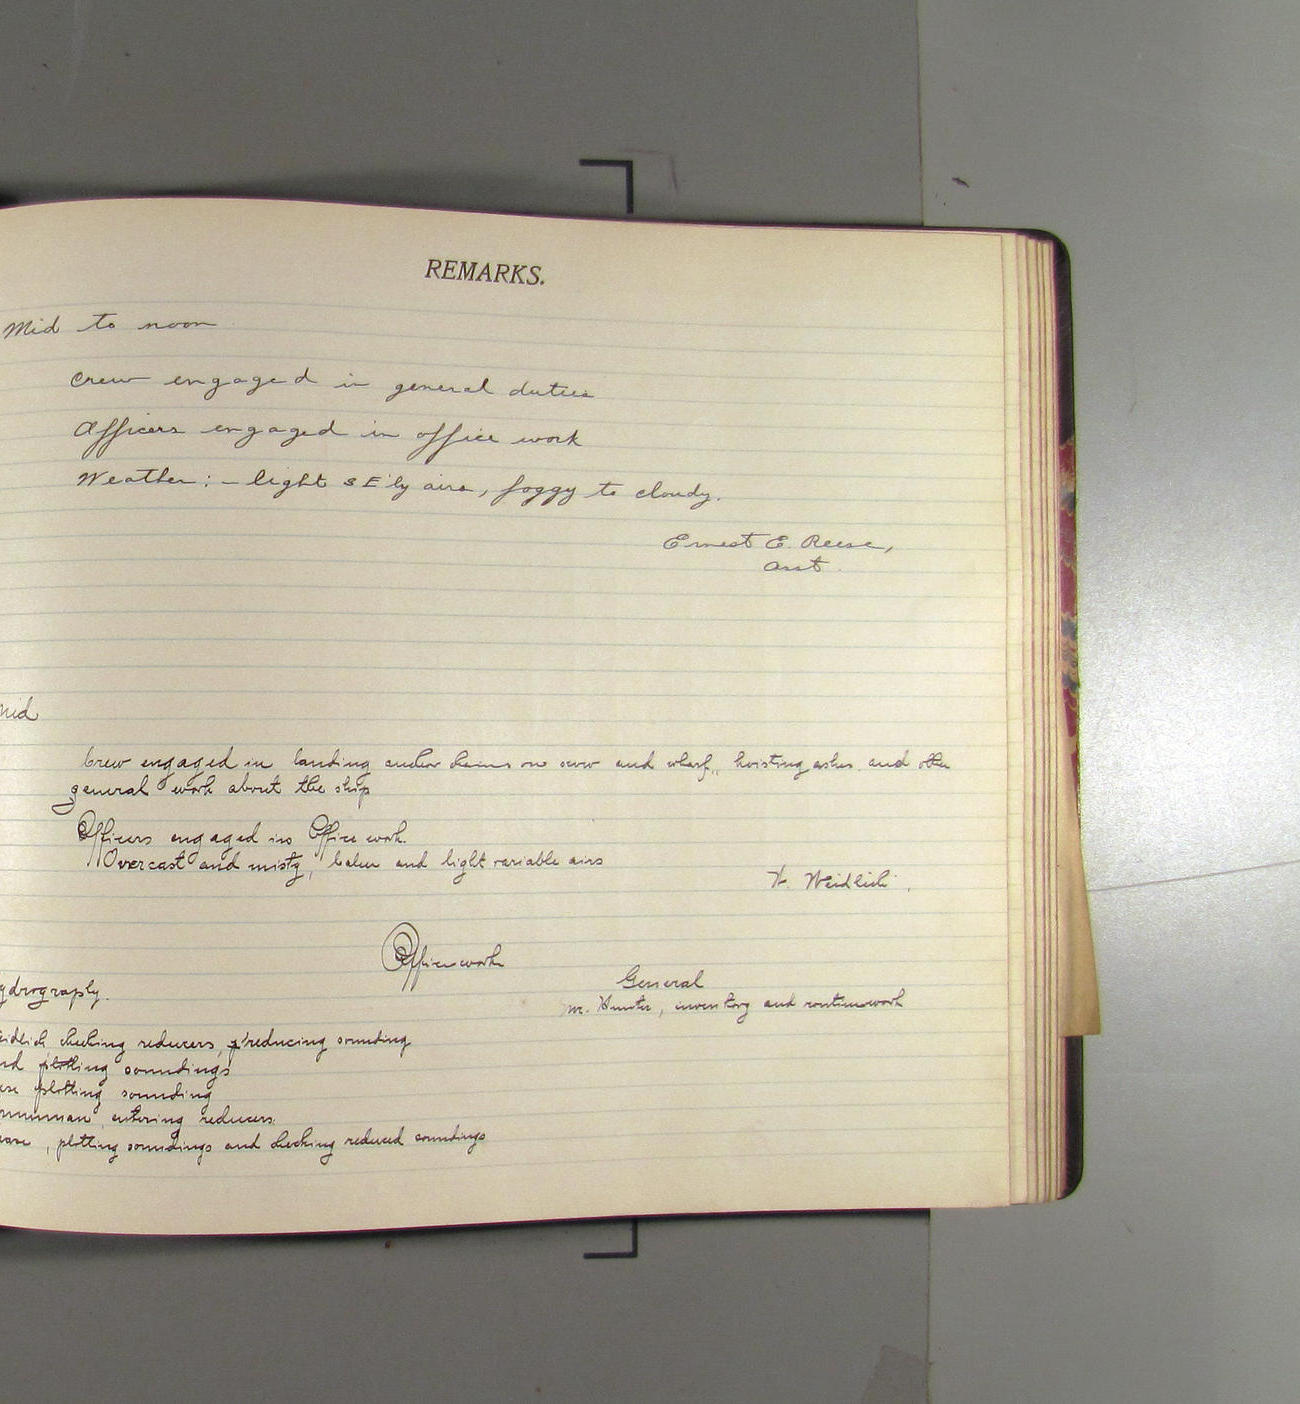 REMARKS.
Mid to noon
Crew engaged in general duties
Officers engaged in office work
Weather:- light SE'ly airs, foggy to cloudy.
Ernest E. Reese,
Asst.
Mid
Crew engaged in landing anchor chains on scow and wharf, hoisting ashes and other
general work about the ship
Officers engaged in Office work.
Overcast and misty, calm and light variable airs
H. Weidlich.
Office work
ydrography.
General
Mr. Hunter, inventory and routine work
eidlich checking reducers, reducing sounding
nd plotting soundings
ese plotting sounding
entering reducers.
, plotting soundings and checking reduced soundings